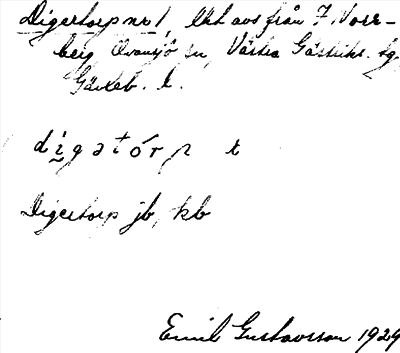 Digertorp no 1, lht avs från 7 Norr-
berg Ovansjö sn, Västra Gästrikl. tg
Gävleb. l.
digatórp t
Digertorp jb, kb
Emil Gustavsson 1929